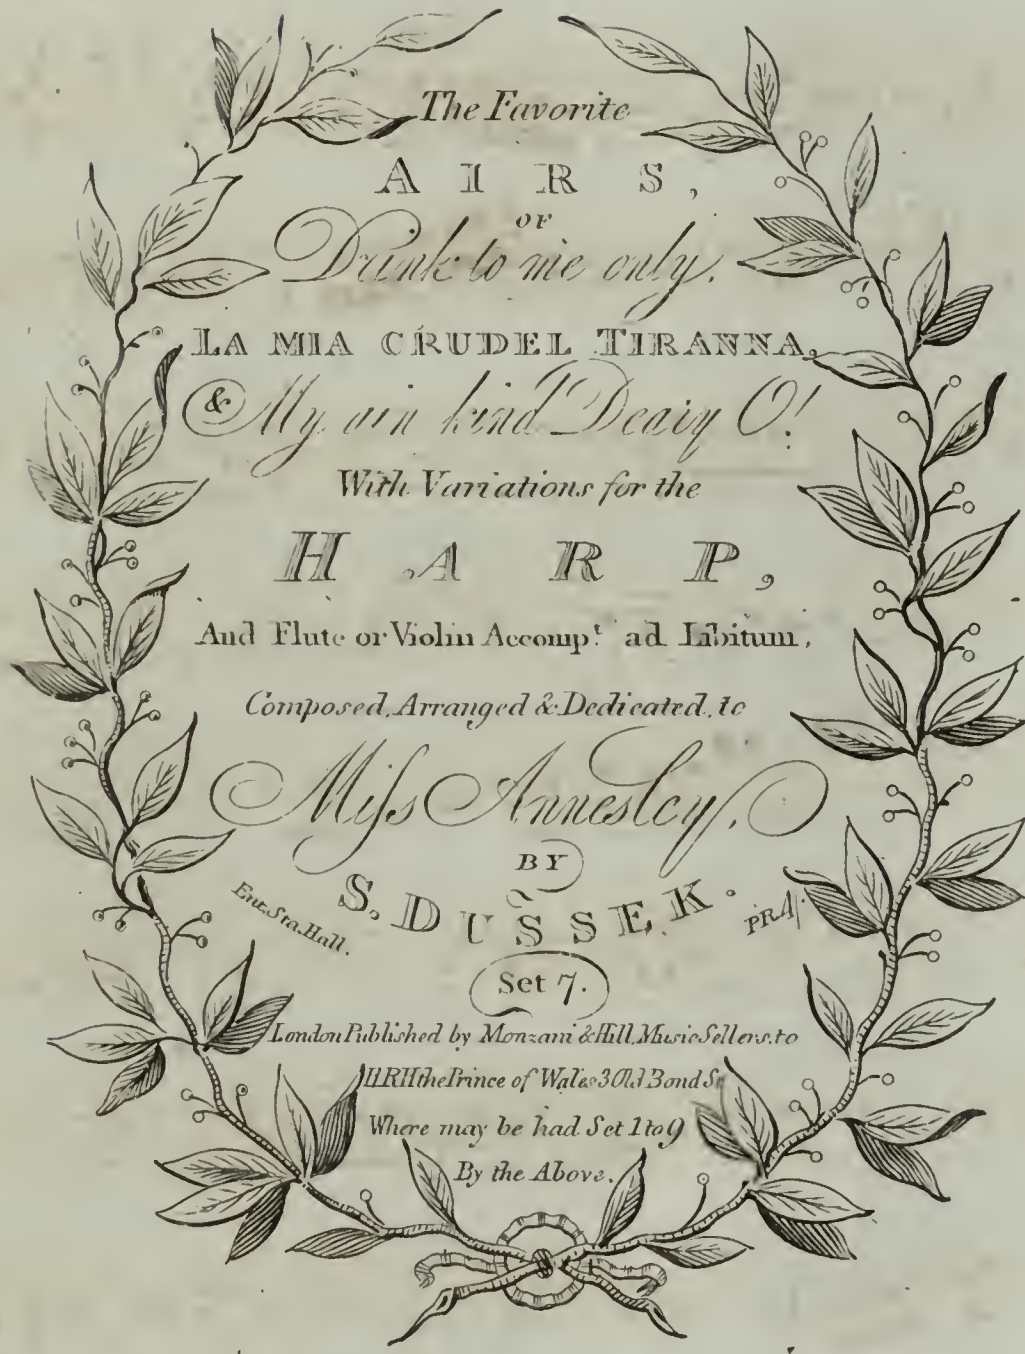 The Favorite
AIRS,
OF
Drink to me only.
LA MIA CRUDEL TIRANNA,
& My ain kind Deary O!
With Variations for the
HARP,
And Flute or Violin Accompt. ad Libitum,
Composed, Arranged & Dedicated, to
Miſs Annesley,
BY
Ent. Sta. Hall. S. DUSSEK. PR 4/.
Set 7.
London Published by Monzani & Hill, Music Sellers, to
HRH the Prince of Wales 3 Old Bond St
Where may be had Set 1 to 9
By the Above.